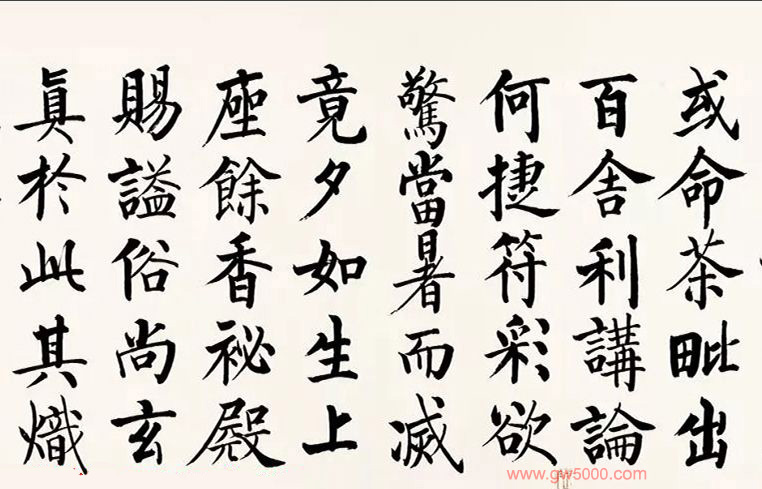 或命茶毗出
百舍利講論
何捷符彩欲
驚當暑而滅
竟夕如生上
座餘香祕殿
賜謚俗尚玄
眞於此其熾
www.gw5000.com